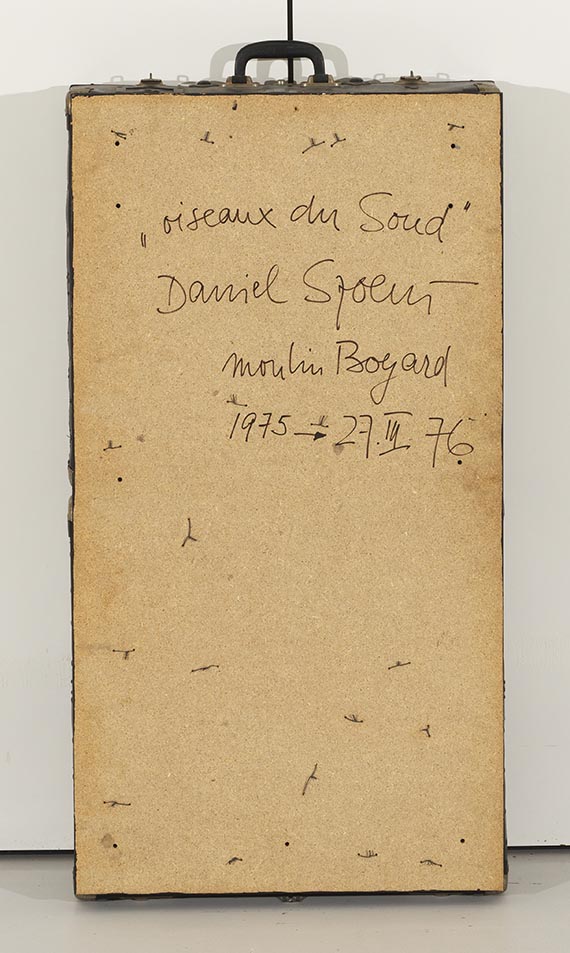 „oiseaux du Soud"
Daniel Spoerri
moulin Boyard
1975 → 27.III 76